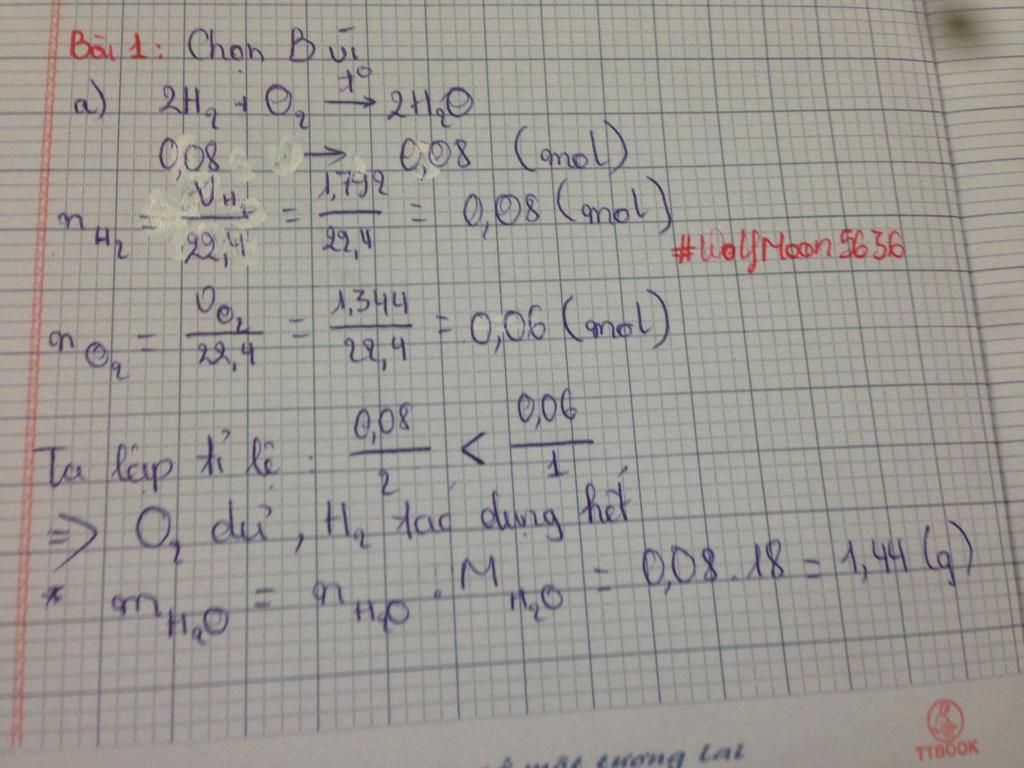 Bài 1: Chọn B vì
a) 2H₂ + O₂ t⁰→ 2H₂O
0,08 → 0,08 (mol)
n H₂ = V H₂ / 22,4 = 1,792 / 22,4 = 0,08 (mol)
#WolfMoon5636
n O₂ = V O₂ / 22,4 = 1,344 / 22,4 = 0,06 (mol)
Ta lập tỉ lệ : 0,08 / 2 < 0,06 / 1
=> O₂ dư, H₂ tác dụng hết
* m H₂O = n H₂O . M H₂O = 0,08 . 18 = 1,44 (g)
TTBOOK
tương lai